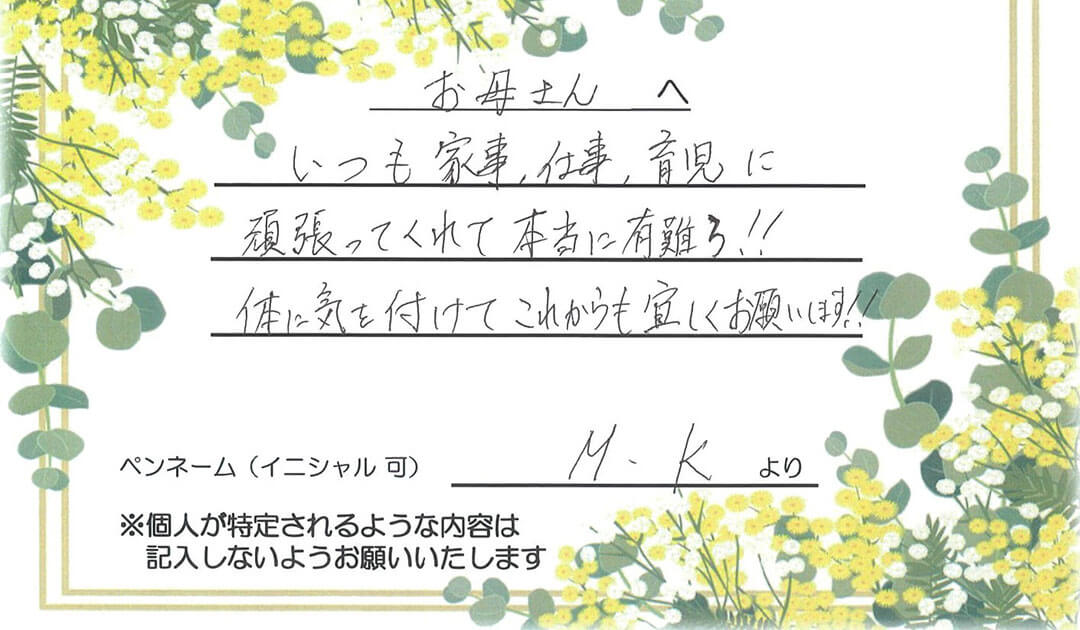 お母さん へ
いつも家事、仕事、育児に
頑張ってくれて本当に有難う!!
体に気を付けてこれからも宜しくお願いします!!
ペンネーム（イニシャル 可） M.K より
※個人が特定されるような内容は
記入しないようお願いいたします